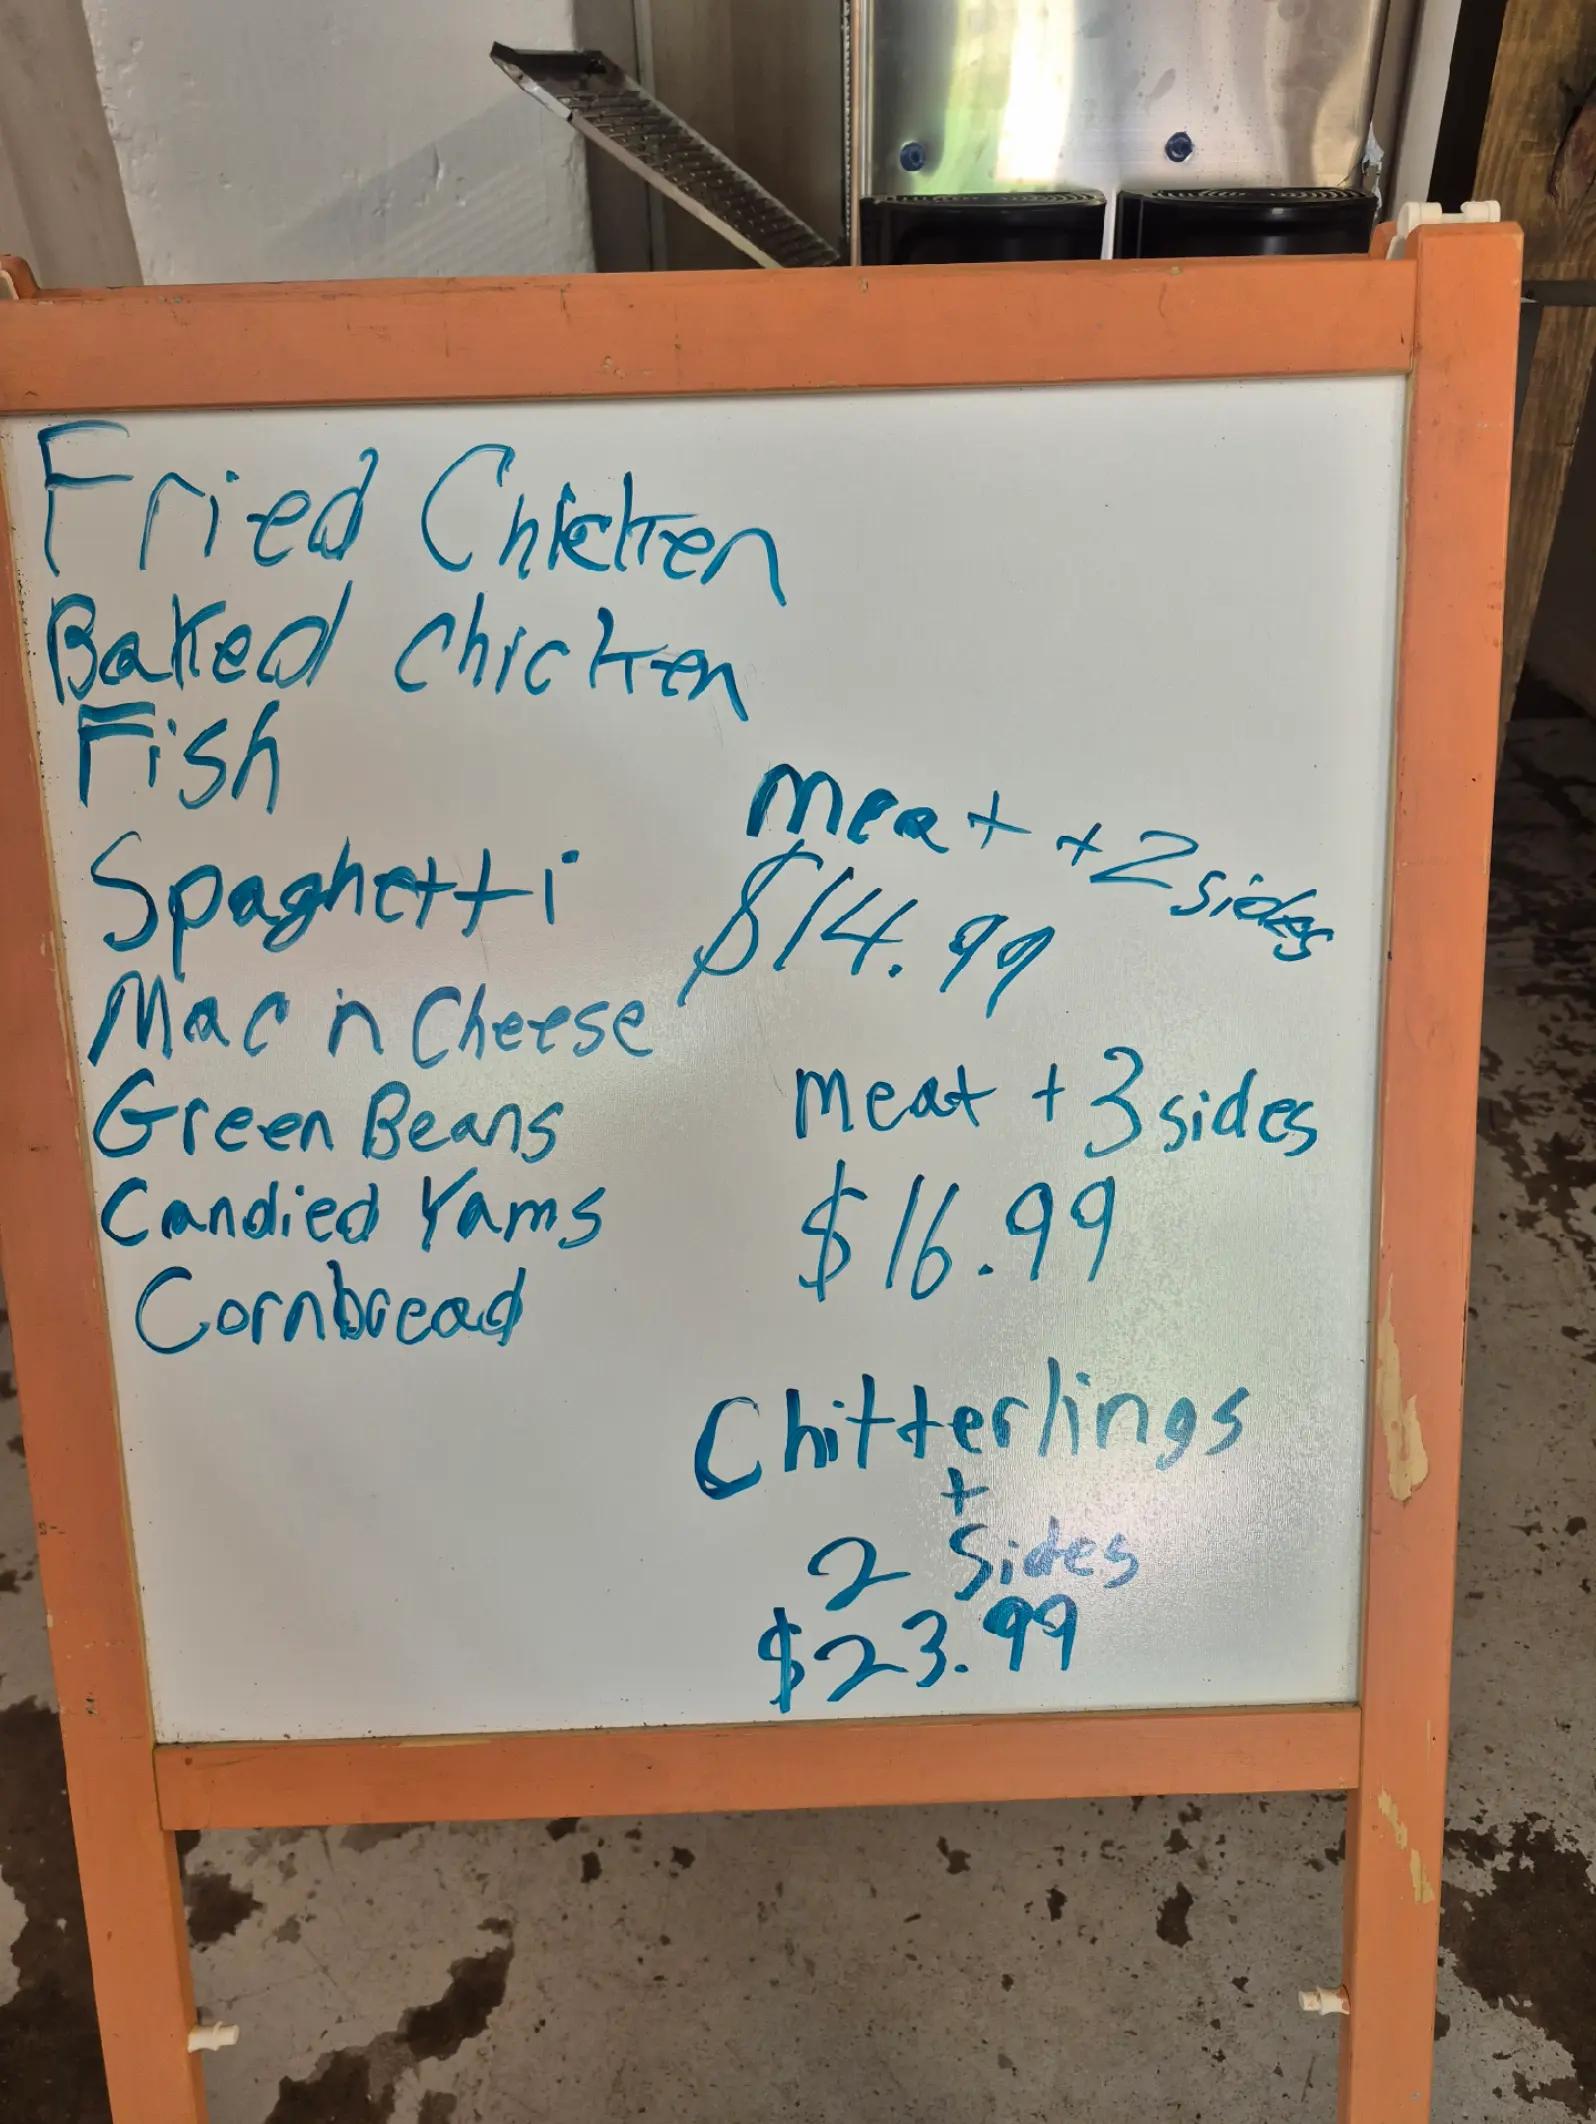 Fried Chicken
Baked chicken
Fish
Spaghetti
Mac n Cheese
Green Beans
Candied Yams
Cornbread
meat + 2 sides
$14.99
meat + 3 sides
$16.99
Chitterlings
+
2 Sides
$23.99